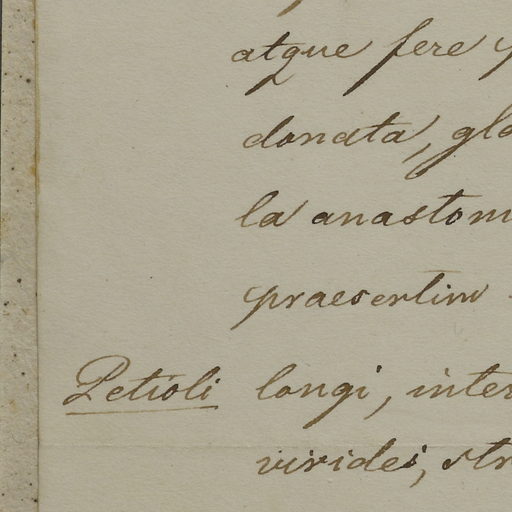 atque fere
donata, gla
la anastom
praesertim
Petioli longi, inter
virides, str